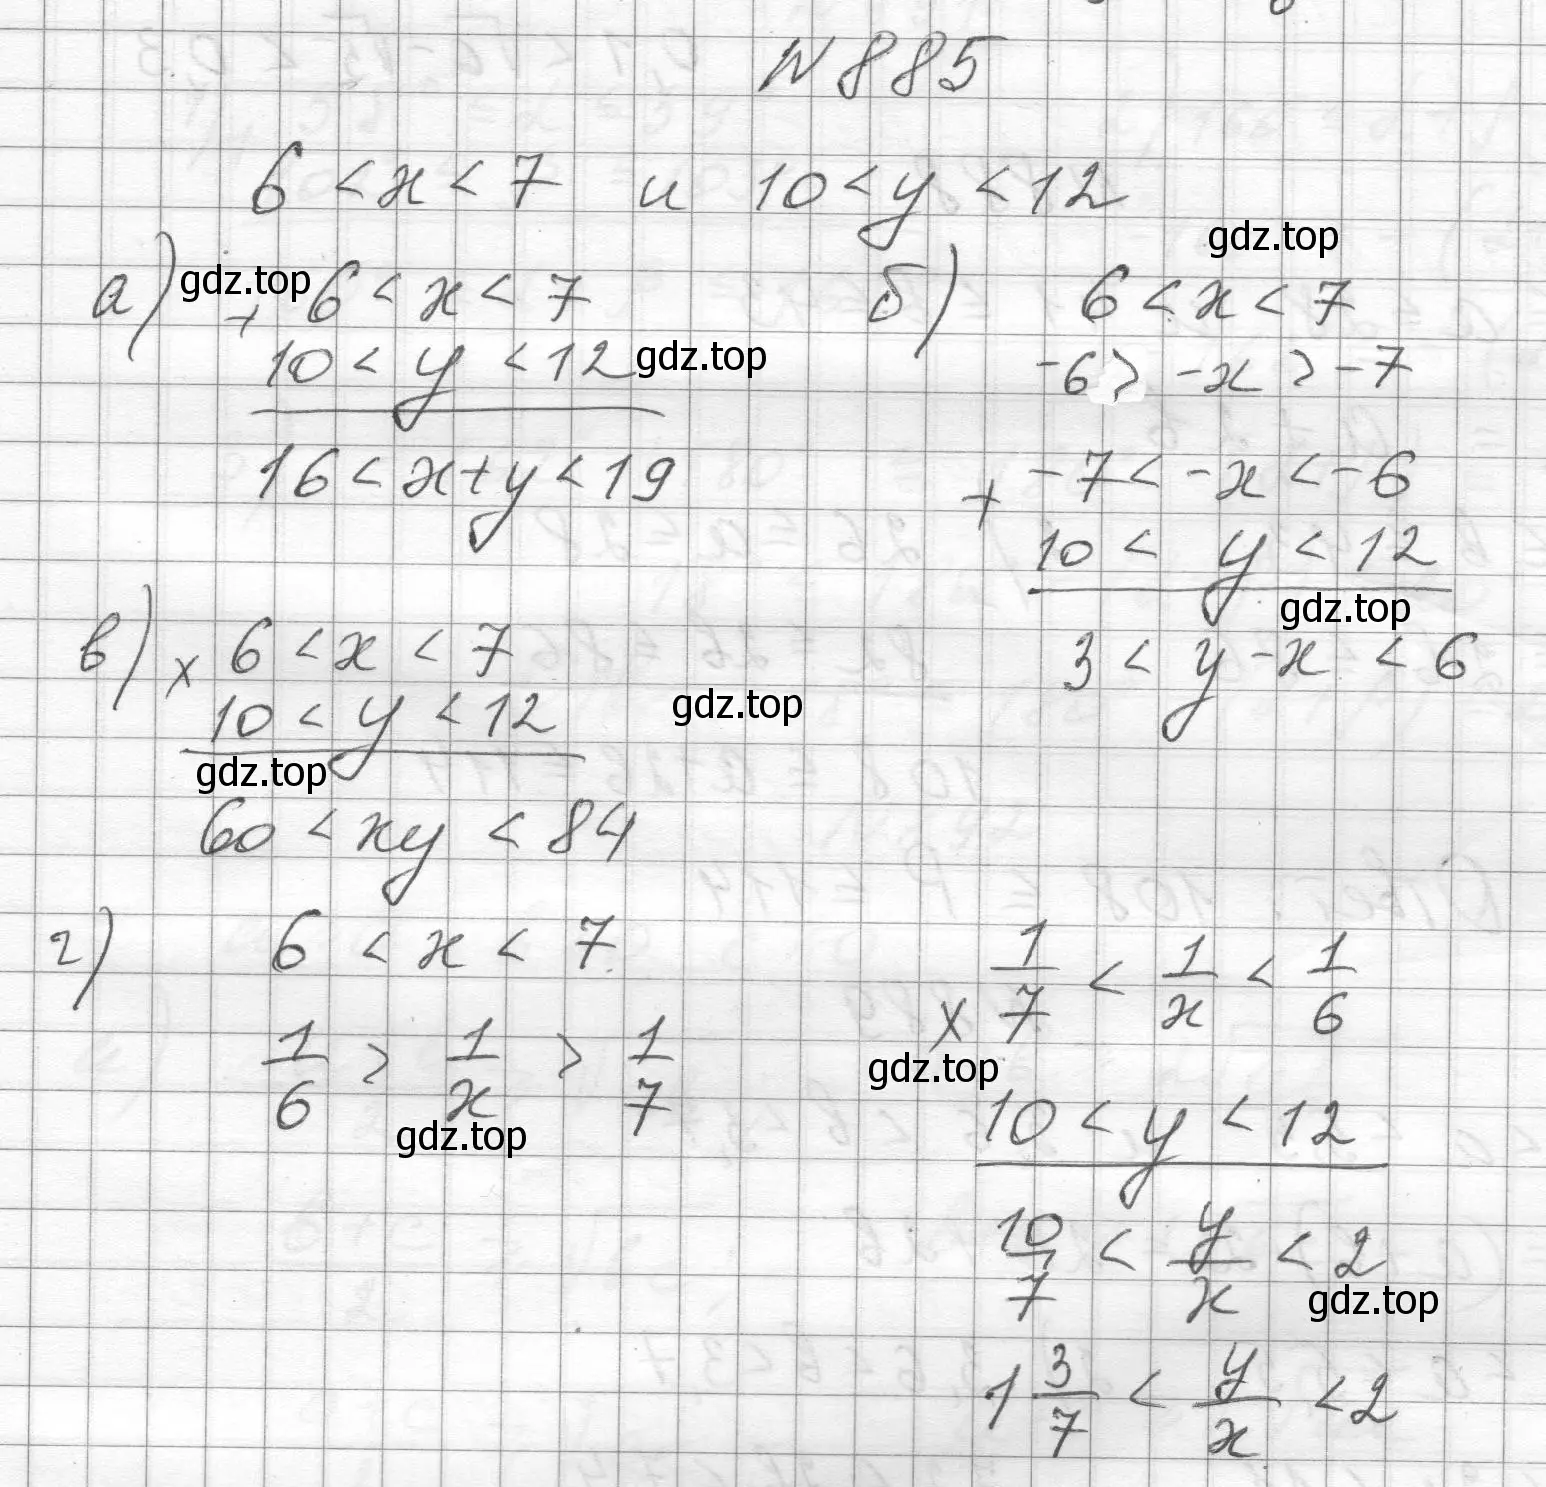 N 885
6 < x < 7 и 10 < y < 12
а) gdz.top
+ 6 < x < 7
10 < y < 12 gdz.top
16 < x+y < 19
б) 6 < x < 7 gdz.top
-6 > -x > -7
+ -7 < -x < -6
10 < y < 12
gdz.top
3 < y - x < 6
в) x 6 < x < 7
10 < y < 12 gdz.top
gdz.top
60 < xy < 84
г) 6 < x < 7
1/6 > 1/x > 1/7
gdz.top
x 1/7 < 1/x < 1/6
gdz.top
10 < y < 12
10/7 < y/x < 2
gdz.top
1 3/7 < y/x < 2